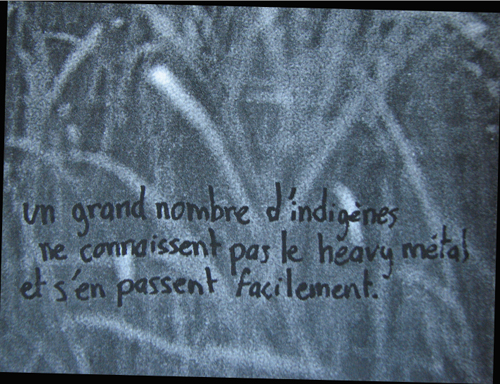 un grand nombre d'indigènes
ne connaissent pas le héavy métal
et s'en passent facilement.